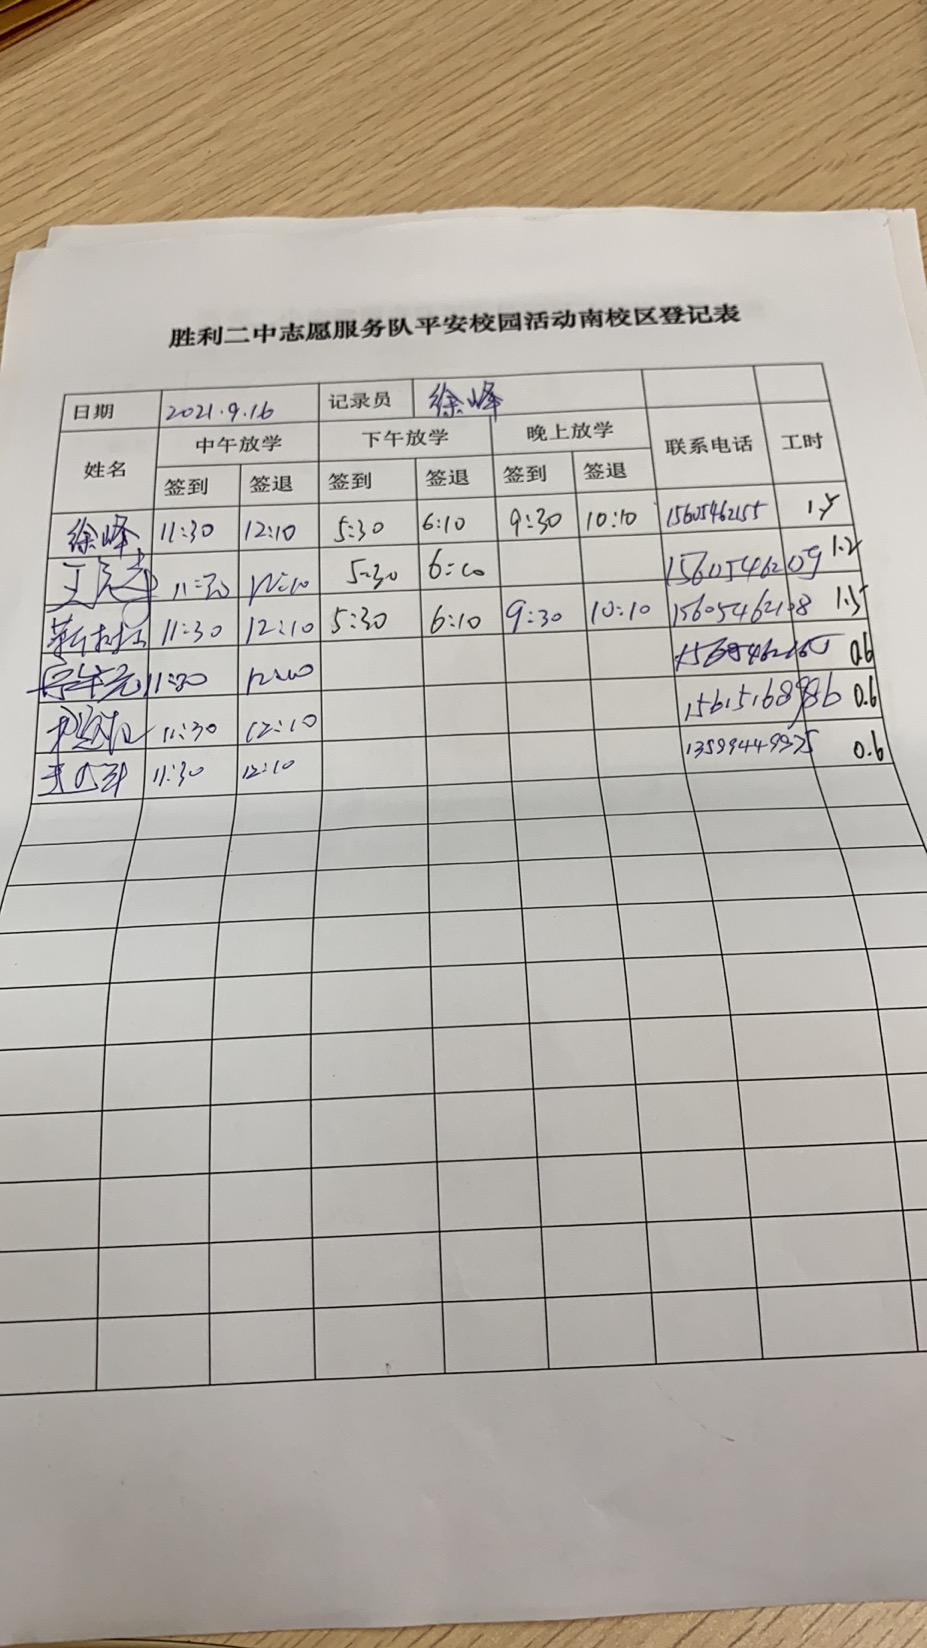 胜利二中志愿服务队平安校园活动南校区登记表
日期 2021.9.16 记录员 徐峰
姓名 中午放学 下午放学 晚上放学 联系电话 工时
签到 签退 签到 签退 签到 签退
徐峰 11:30 12:10 5:30 6:10 9:30 10:10 15605462155 1.5
11:30 12:10 5:30 6:10 15605462109 1.2
11:30 12:10 5:30 6:10 9:30 10:10 15605462108 1.5
11:30 12:10 0.6
11:30 12:10 15615168986 0.6
11:30 12:10 13599449975 0.6